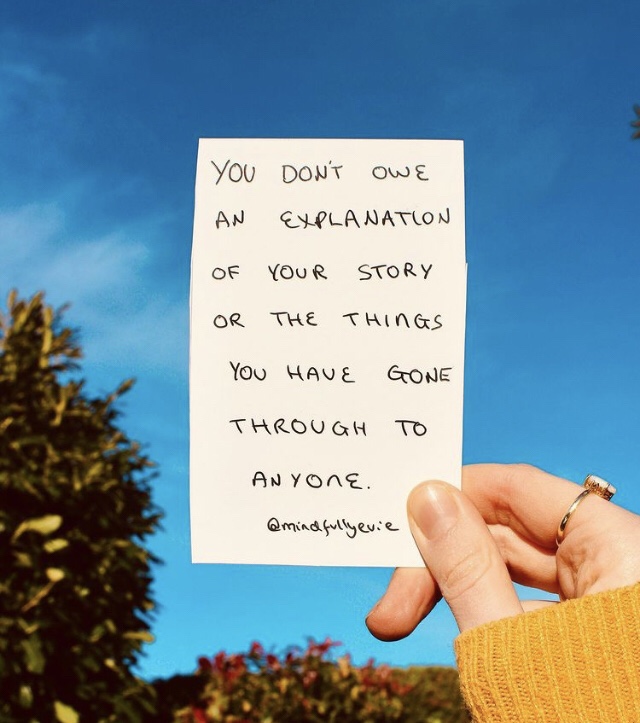 YOU DON'T OWE
AN EXPLANATION
OF YOUR STORY
OR THE THINGS
YOU HAVE GONE
THROUGH TO
ANYONE.
@mindfullyevie